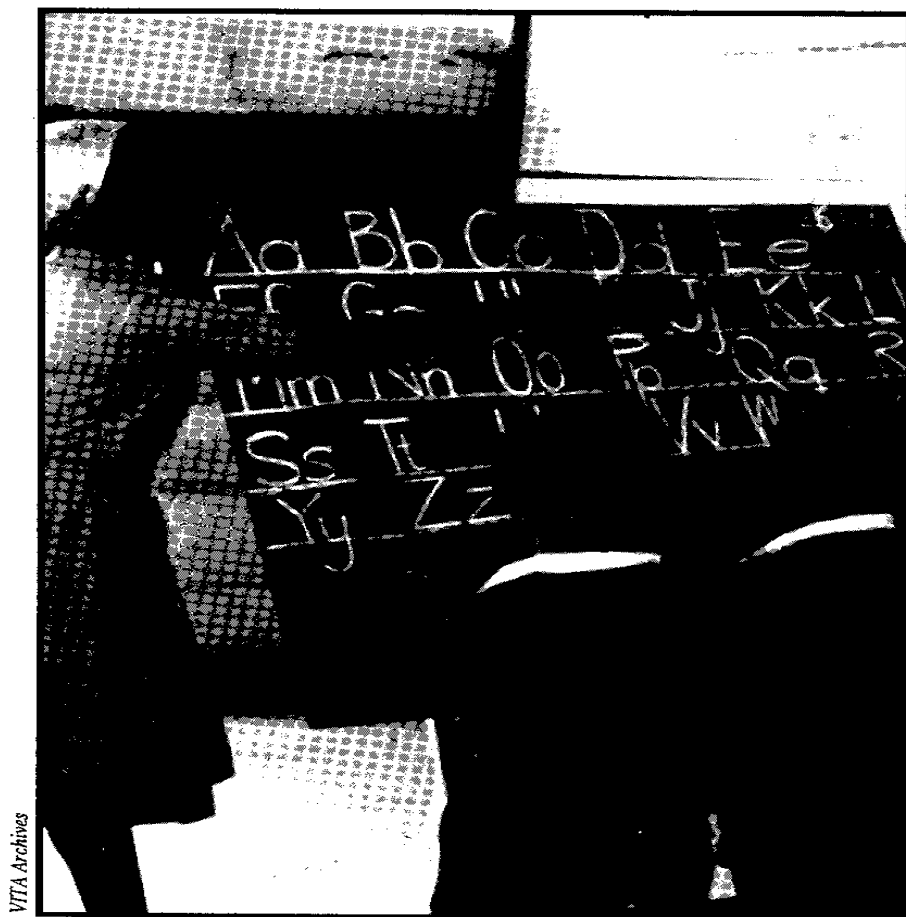 Aa Bb Cc Dd Ee
Ff Jj Kk
Mm Nn Oo Pp Qq
Ss Tt Vv W
Yy Zz
VITA Archives